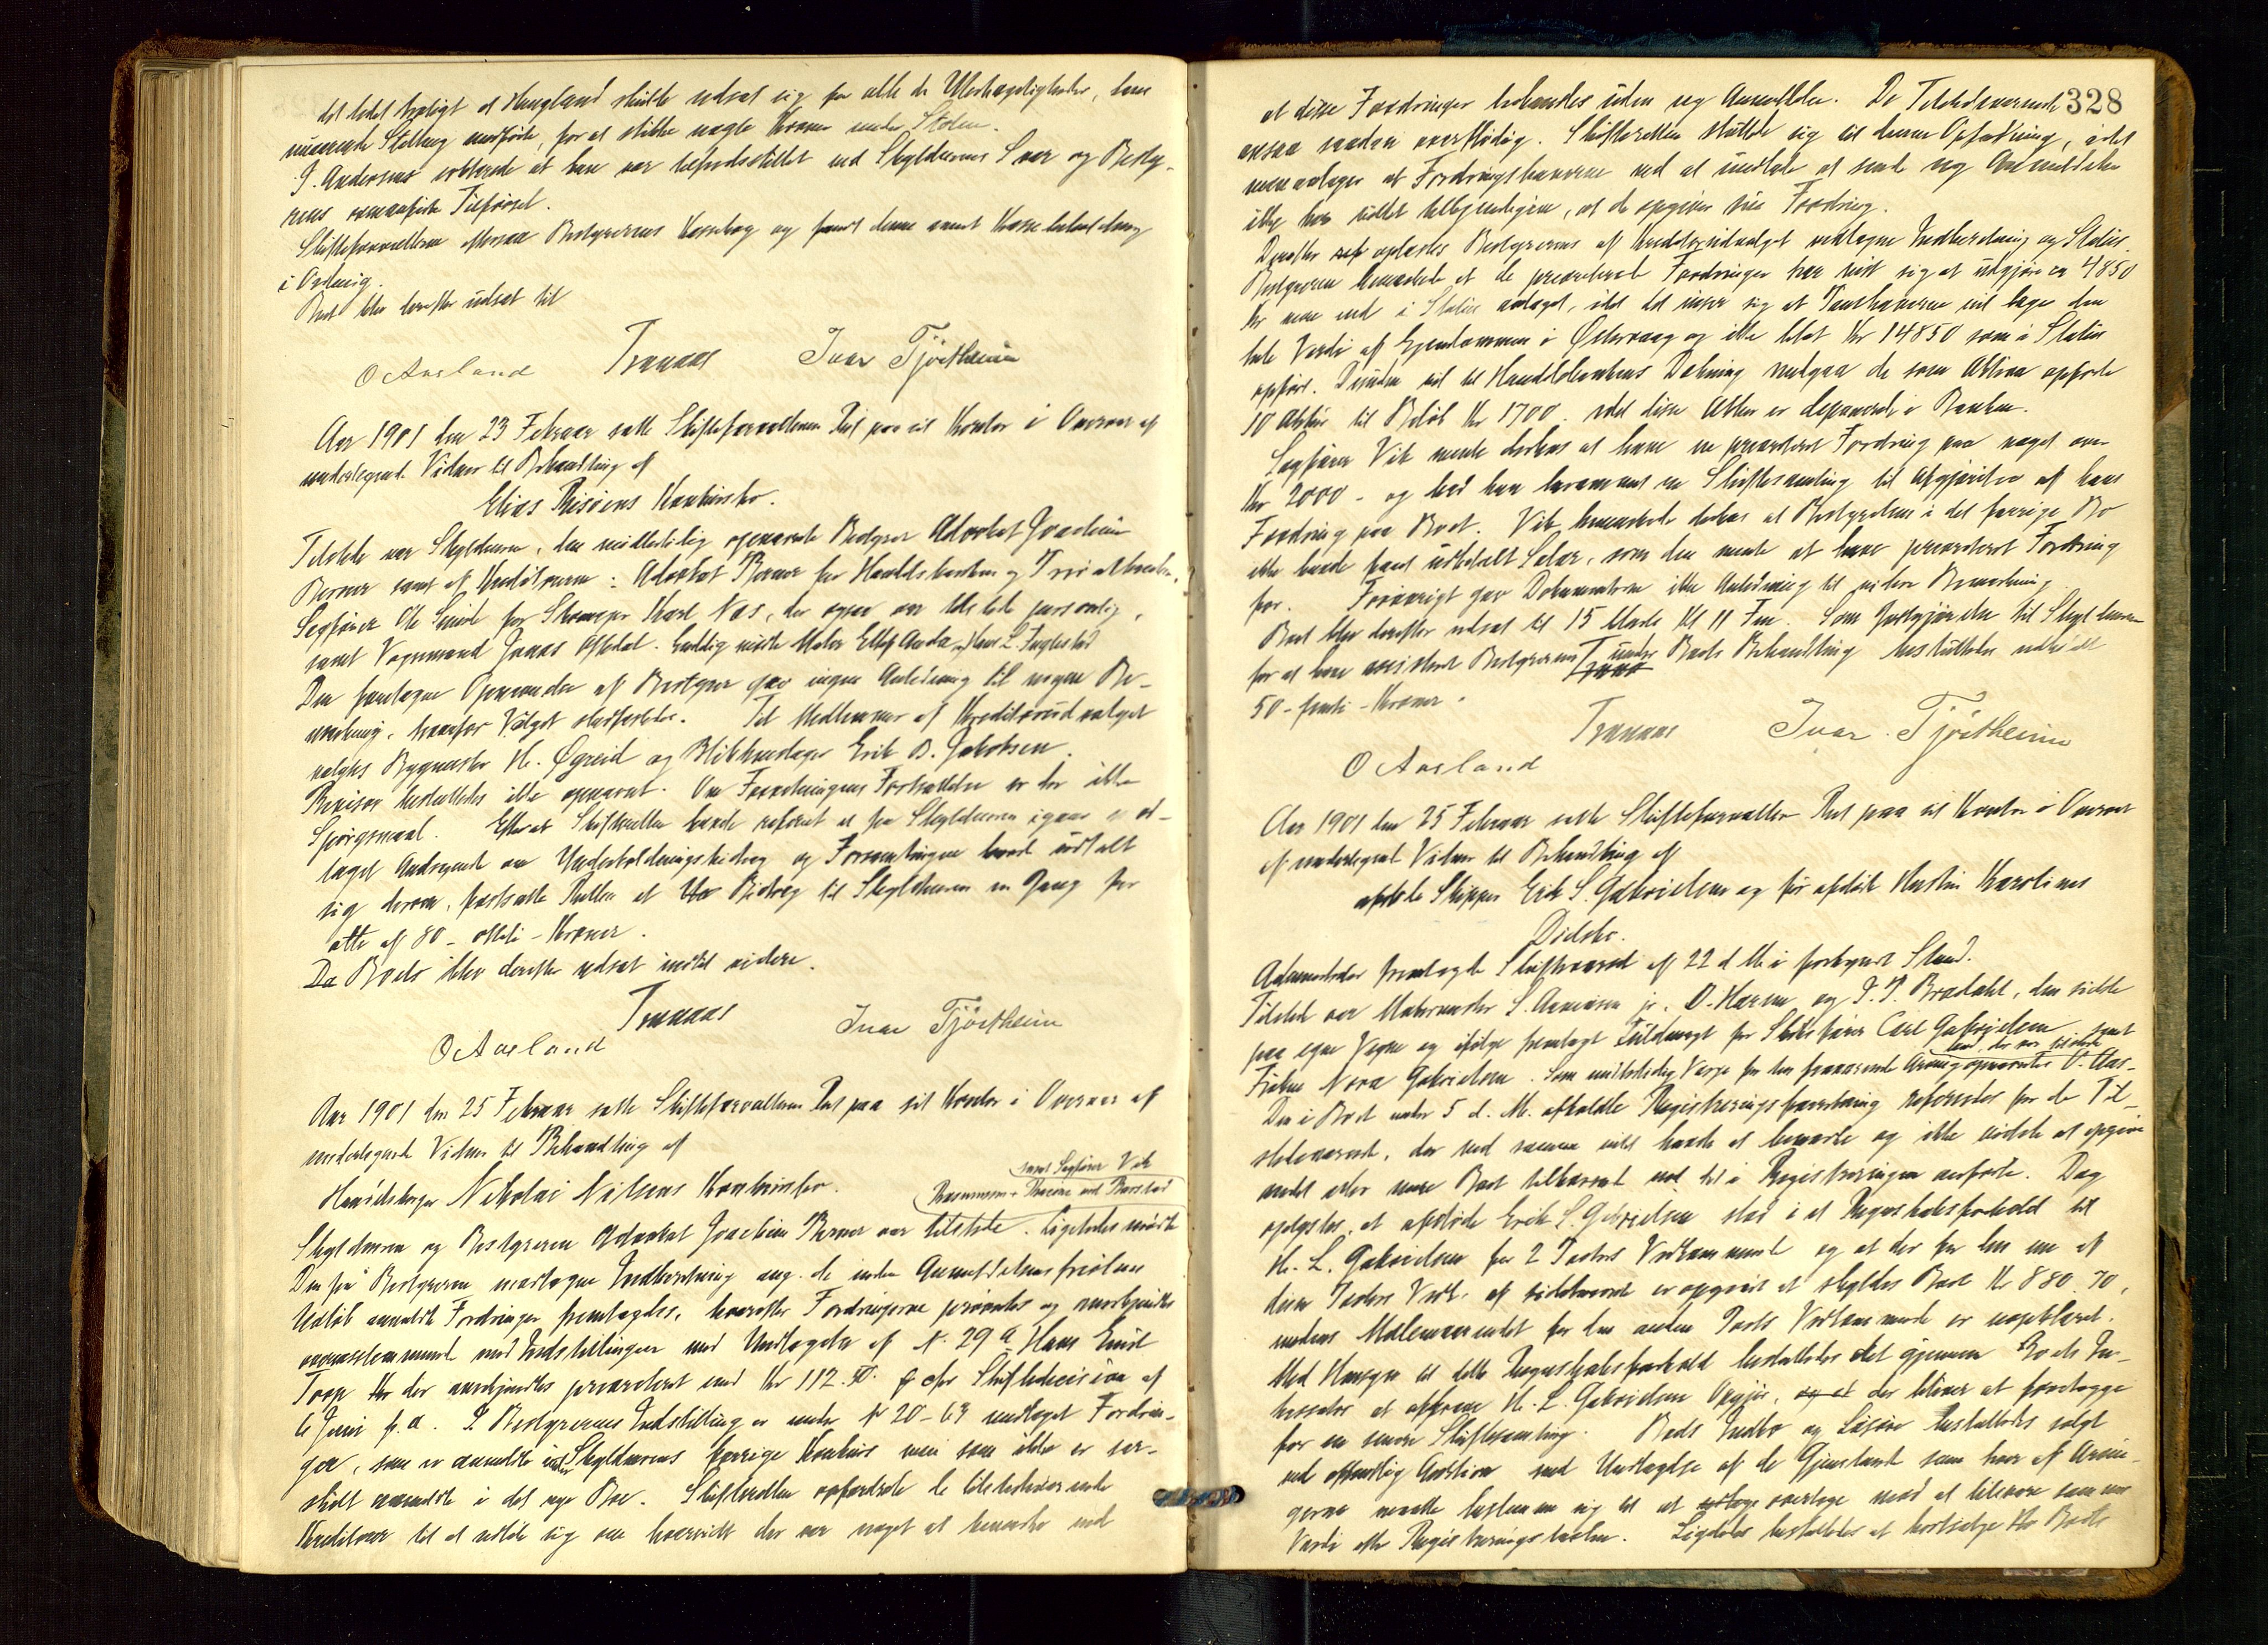 det ledet troligt at Haugland skulde udsat sig for alle de Ubehageligheder, hans
nuværende Stilling medførte, for at stikke nogle Kroner under Stolen.
J. Andersens erklærede at han var tilfredsstillet med Skyldnerens Svar og Besty-
rens Tilførsel.
Skifteforvalteren eftersaa Bestyrerens Kassebog og fandt denne samt Kassebeholdning
i Orden.
Boet blev derefter udsat til
O Aasland Tranaas Ivar Tjöstheim
Aar 1901 den 23 Februar satte Skifteforvalteren Ret paa sit Kontor i Overvær af
undertegnede Vidner til Behandling af
Elias Risøens Konkursbo.
Tilstede var Skyldneren, den midlertidig opnævnte Bestyrer Advokat Joachim
Berner samt af Kreditorerne: Advokat Berner for Handelsbanken og Privatbanken,
Sagfører Ole Smith for Skomager Karl Næs, der ogsaa var tilstede personlig,
samt Vognmand Jonas Oftedal. Endvidere mødte Maler Ellef Anda og Hans L. Fuglestad
Den foretagne Opnævnelse af Bestyrer gav ingen Anledning til nogen Be-
mærkning, hvorfor Valget stadfæstedes. Til Medlemmer af Kreditorudvalget
valgtes Bygmester H. Øgreid og Blikkenslager Erik B. Jakobsen.
Revisor besluttedes ikke opnævnt. Om Forretningens Fortsættelse er der ikke
Spørgsmaal. Efter at Skifteretten havde refereret et fra Skyldneren igaar mod-
taget Andragende om Underholdningsbidrag og Forsamlingen havde udtalt
sig derom, fastsatte Retten et Bidrag til Skyldneren en Gang for
alle af 80 - otteti - Kroner.
Boet blev derefter udsat indtil videre.
Tranaas
O Aasland Ivar Tjöstheim
Aar 1901 den 25 Februar satte Skifteforvalteren Ret paa sit Kontor i Overvær af
undertegnede Vidner til Behandling af
samt Sagfører Vik
Handelsborger Nikolai Nilsens Konkursbo.
Skyldneren og Bestyreren Advokat Joachim Berner var tilstede. Ligeledes mødte
Den fra Bestyreren modtagne Indberetning ang. de inden Anmeldelsesfristens
Udløb anmeldte Fordringer fremlagdes, hvorefter Fordringerne prøvedes og anerkjendtes
overensstemmende med Indstillingen med Undtagelse af N. 29 a Hans Emil
Toop der anerkjendtes prioriteret med Kr 112.50. cfr Skiftedecision af
6 Juni f. a. I Bestyrerens Indstilling er under N 20-63 medtaget Fordrin-
ger, som er anmeldte under Skyldnerens forrige Konkurs men som ikke er sær-
skilt anmeldte i det nye Bo. Skifteretten opfordrede de tilstedeværende
Kreditorer til at udtale sig om hvorvidt der var noget at bemærke ved
328
at disse Fordringer behandles uden ny Anmeldelse. De Tilstedeværende
ansaa saadan overflødig. Skifteretten sluttede sig til denne Opfatning, idet
man antager at Fordringshaverne ved at undlade at sende ny Anmeldelse
ikke har villet tilkjendegive, at de opgiver sin Fordring.
Derefter oplæstes Bestyrerens af Kreditorudvalget vedtagne Indberetning og Status.
Bestyreren bemærkede at de prioriterede Fordringer har vist sig at udgjøre ca 4850
Kr mere end i Status antaget, idet det viser sig at Panthaverne vil tage den
hele Værdi af Eiendommen i Østervaag og ikke blot Kr 14850 som i Status
opført. Desuden vil til Handelsbankens Dækning medgaa de som Aktiva opførte
10 Aktier til Beløb Kr 1700. idet disse Aktier er deponerede i Banken.
Sagfører Vik mente derhos at have en prioriteret Fordring paa noget over
Kr 2000 - og bad han berammet en Skiftesamling til Afgjørelse af hans
Fordring paa Boet. Vik bemærkede derhos at Bestyrelsen i det forrige Bo
ikke havde faaet udbetalt Salær, som den mente at have prioriteret Fordring
for. Forøvrigt gav Dokumenterne ikke Anledning til videre Bemærkning
Boet blev derefter udsat til 15 Marts Kl 11 Fm. Som Godtgjørelse til Skyldneren
for at have assisteret Bestyreren under Boets Behandling besluttedes udbetalt
50 - femti - Kroner.
Tranaas Ivar Tjöstheim
O Aasland
Aar 1901 den 25 Februar satte Skifteforvalteren Ret paa sit Kontor i Overvær
af undertegnede Vidner til Behandling af
afdøde Skipper Erik S. Gabrielsen og før afdøde Hustru Karolines
Dødsbo.
Administrator fremlagde Skiftevarsel af 22 d. M. i forkyndt Stand.
Tilstede var Malermester S. Asmussen jr. O. Hansen og P. T. Brodahl, den sidste
paa egne Vegne og ifølge fremlagt Fuldmagt for Carl Gabrielsen samt
Frøken Nora Gabrielsen. Som midlertidig Værge for den fraværende Arving opnævntes O. Aas-
land, der var tilstede
Den i Boet under 5 d. M. afholdte Registreringsforretning refereredes for de Til-
stedeværende, der ved samme intet havde at bemærke og ikke vidste at opgive
andet eller mere Boet tilhørende end det i Registreringen anførte. Dog
oplystes, at afdøde Erik S. Gabrielsen stod i et Regnskabsforhold til
H. L. Gabrielsen for 2 Parters Vedkommende og at der for den ene af
disse Parters Vedk. af sidstnævnte er opgivet at skyldes Boet Kr 880.70,
medens Mellemværendet for den anden Parts Vedkommende er uopklaret.
Med Hensyn til dette Regnskabsforhold besluttedes det gjennem Boets In-
kassator at affordre H. L. Gabrielsen Opgjør, der bliver at fremlægge
for en senere Skiftesamling. Boets Indbo og Løsøre besluttedes solgt
ved offentlig Auktion med Undtagelse af de Gjenstande som hver af Arvin-
gerne maatte bestemme sig til at overtage mod at tilsvare samme
Værdi efter Registreringstaksten. Ligeledes besluttedes at bortsælge Boets